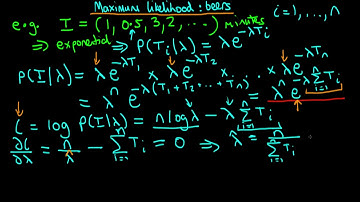 Maximum likelihood: beers
i=1,...,n
e.g. T = (1, 0.5, 3, 2, ...) minutes
⇒ exponential ⇒ P(Tᵢ|λ) = λe^{-λTᵢ}
P(T|λ) = λe^{-λT₁} × λe^{-λT₂} × ... × λe^{-λTₙ}
= λⁿ e^{-λ(T₁+T₂+...+Tₙ)} = λⁿ e^{-λ∑_{i=1}^{n}Tᵢ}
l = log P(T|λ) = n log λ - λ ∑_{i=1}^{n} Tᵢ
∂l/∂λ = n/λ - ∑_{i=1}^{n} Tᵢ = 0 ⇒ λ̂ = n/∑_{i=1}^{n} Tᵢ